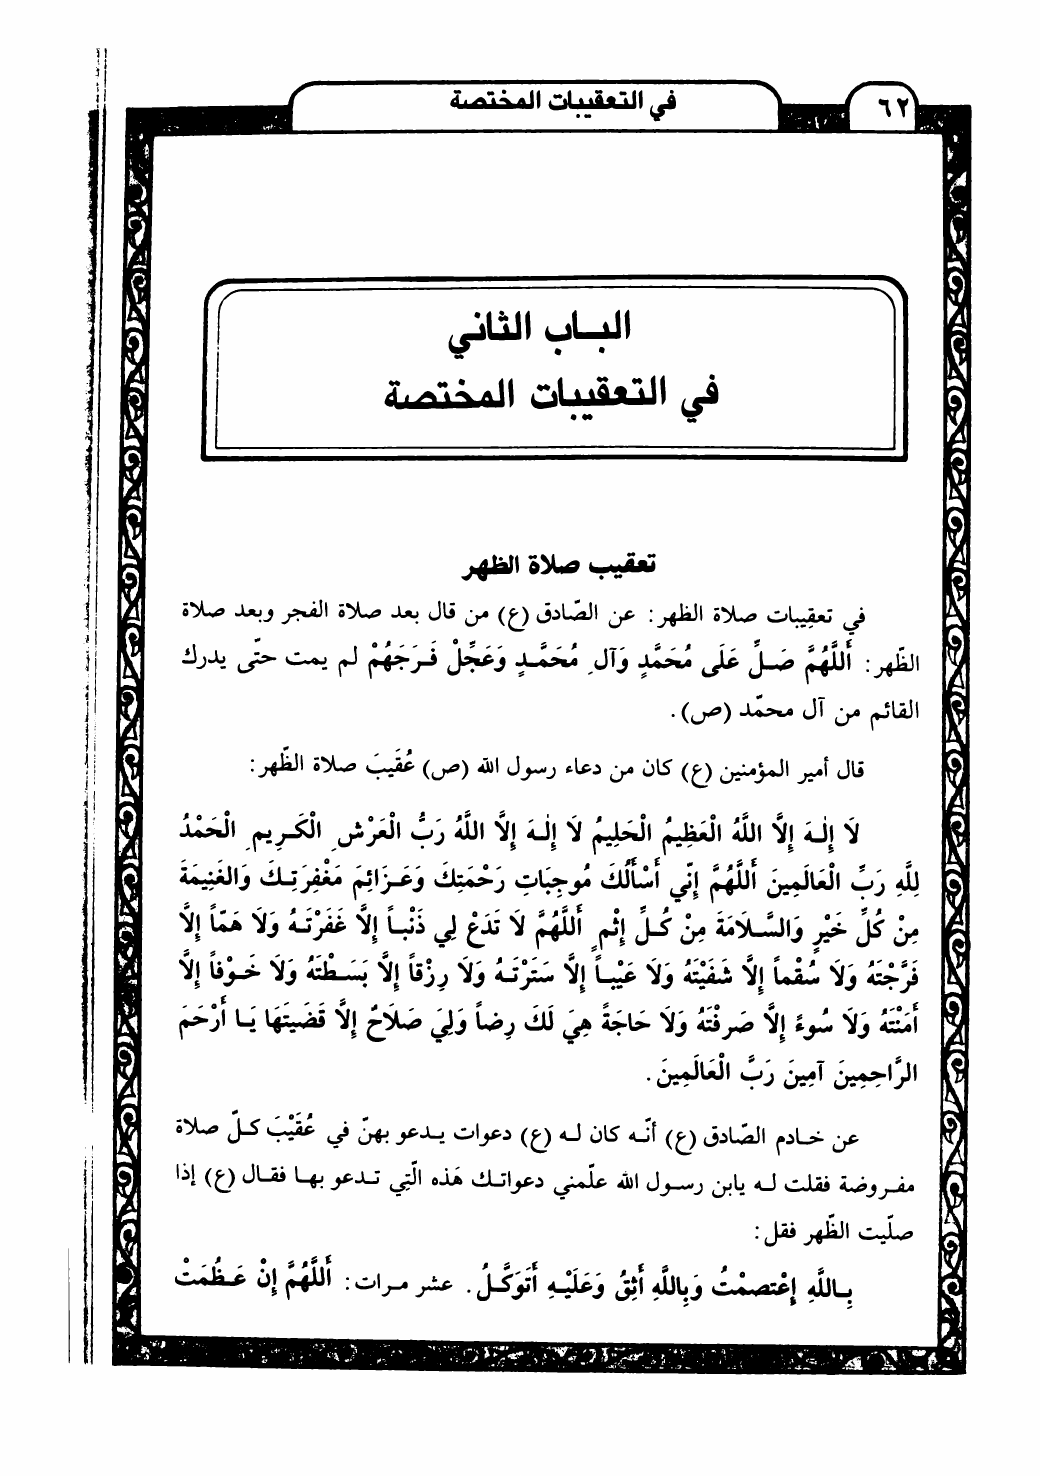 ٦٢
في التعقيبات المختصة
البـاب الثاني
في التعقيبات المختصة
تعقيب صلاة الظهر
في تعقيبات صلاة الظهر: عن الصّادق (ع) من قال بعد صلاة الفجر وبعد صلاة
الظّهر: أَللَّهُمَّ صَلِّ عَلَى مُحَمَّدٍ وَآلِ مُحَمَّدٍ وَعَجِّلْ فَرَجَهُمْ لم يمت حتّى يدرك
القائم من آل محمّد (ص).
قال أمير المؤمنين (ع) كان من دعاء رسول الله (ص) عُقَيبَ صلاة الظّهر:
لَا إِلٰهَ إِلاَّ اللَّهُ الْعَظِيمُ الْحَلِيمُ لَا إِلٰهَ إِلاَّ اللَّهُ رَبُّ الْعَرْشِ الْكَرِيمِ الْحَمْدُ
لِلَّهِ رَبِّ الْعَالَمِينَ أَللَّهُمَّ إِنِّي أَسْأَلُكَ مُوجِبَاتِ رَحْمَتِكَ وَعَزَائِمَ مَغْفِرَتِكَ وَالغَنِيمَةَ
مِنْ كُلِّ خَيْرٍ وَالسَّلاَمَةَ مِنْ كُلِّ إِثْمٍ أَللَّهُمَّ لَا تَدَعْ لِي ذَنْباً إِلاَّ غَفَرْتَهُ وَلَا هَمّاً إِلاَّ
فَرَّجْتَهُ وَلَا سُقْماً إِلاَّ شَفَيْتَهُ وَلَا عَيْباً إِلاَّ سَتَرْتَهُ وَلَا رِزْقاً إِلاَّ بَسَطْتَهُ وَلَا خَوْفاً إِلاَّ
أَمَنْتَهُ وَلَا سُوءً إِلاَّ صَرفْتَهُ وَلَا حَاجَةً هِيَ لَكَ رِضاً وَلِيَ صَلَاحٌ إِلاَّ قَضَيتَهَا يَا أَرْحَمَ
الرَّاحِمِينَ آمِينَ رَبَّ الْعَالَمِينَ.
عن خادم الصّادق (ع) أنّه كان له (ع) دعوات يدعو بهنّ في عُقَيْبَ كلّ صلاة
مفروضة فقلت له يابن رسول الله علّمني دعواتك هَذه الّتِي تدعو بها فقال (ع) إذا
صلّيت الظّهر فقل:
بِاللَّهِ إِعْتصمْتُ وَبِاللَّهِ أَثِقُ وَعَلَيْهِ أَتَوَكَّلُ. عشر مرات: أَللَّهُمَّ إِنْ عَظُمَتْ